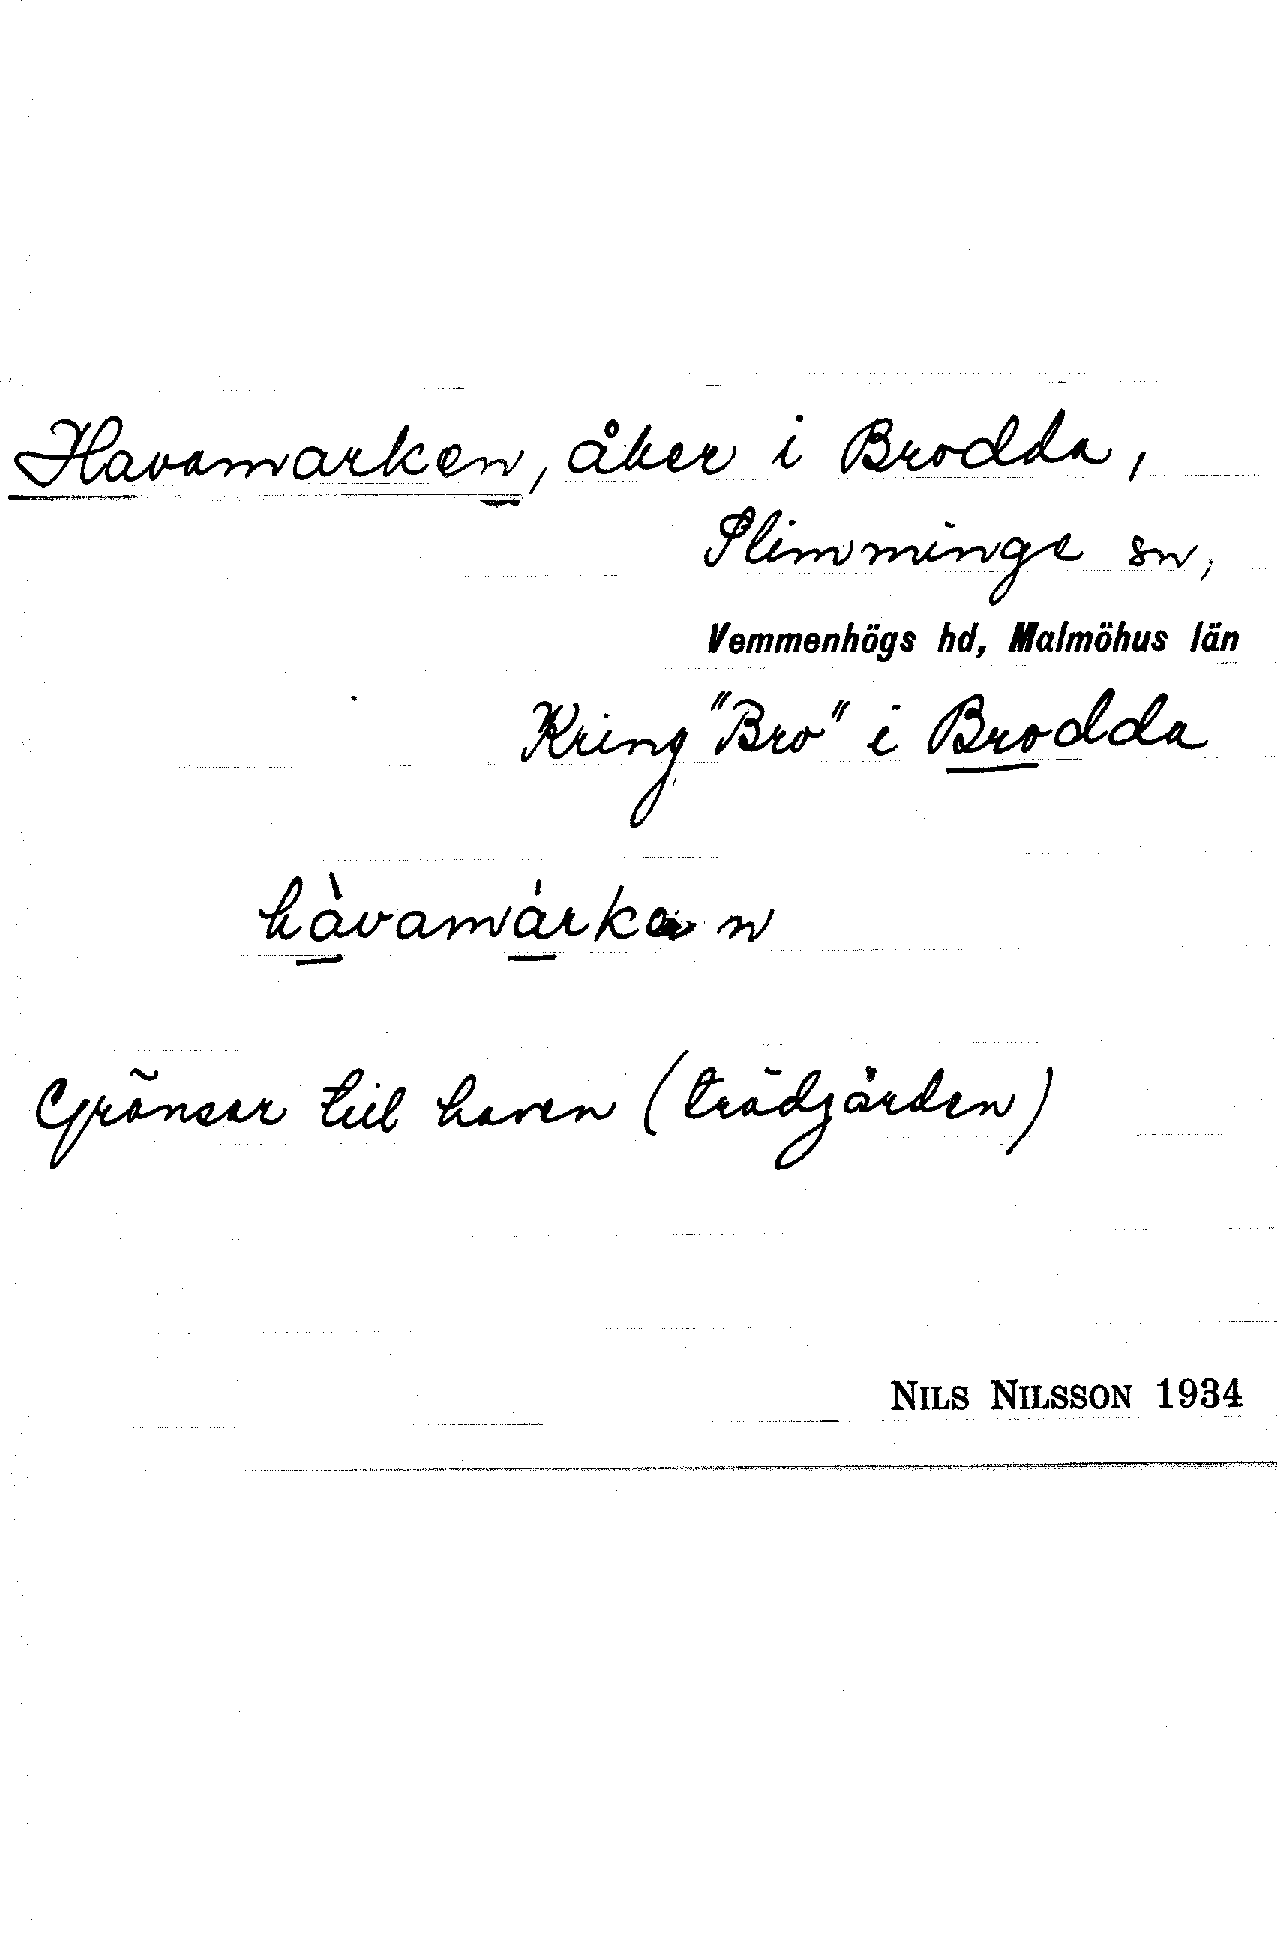 Havamarken, åker i Brodda,
Slimminge sn,
Vemmenhögs hd, Malmöhus län
Kring "Bro" i Brodda
hàvamárkan
Gränsar till haven (trädgården)
NILS NILSSON 1934